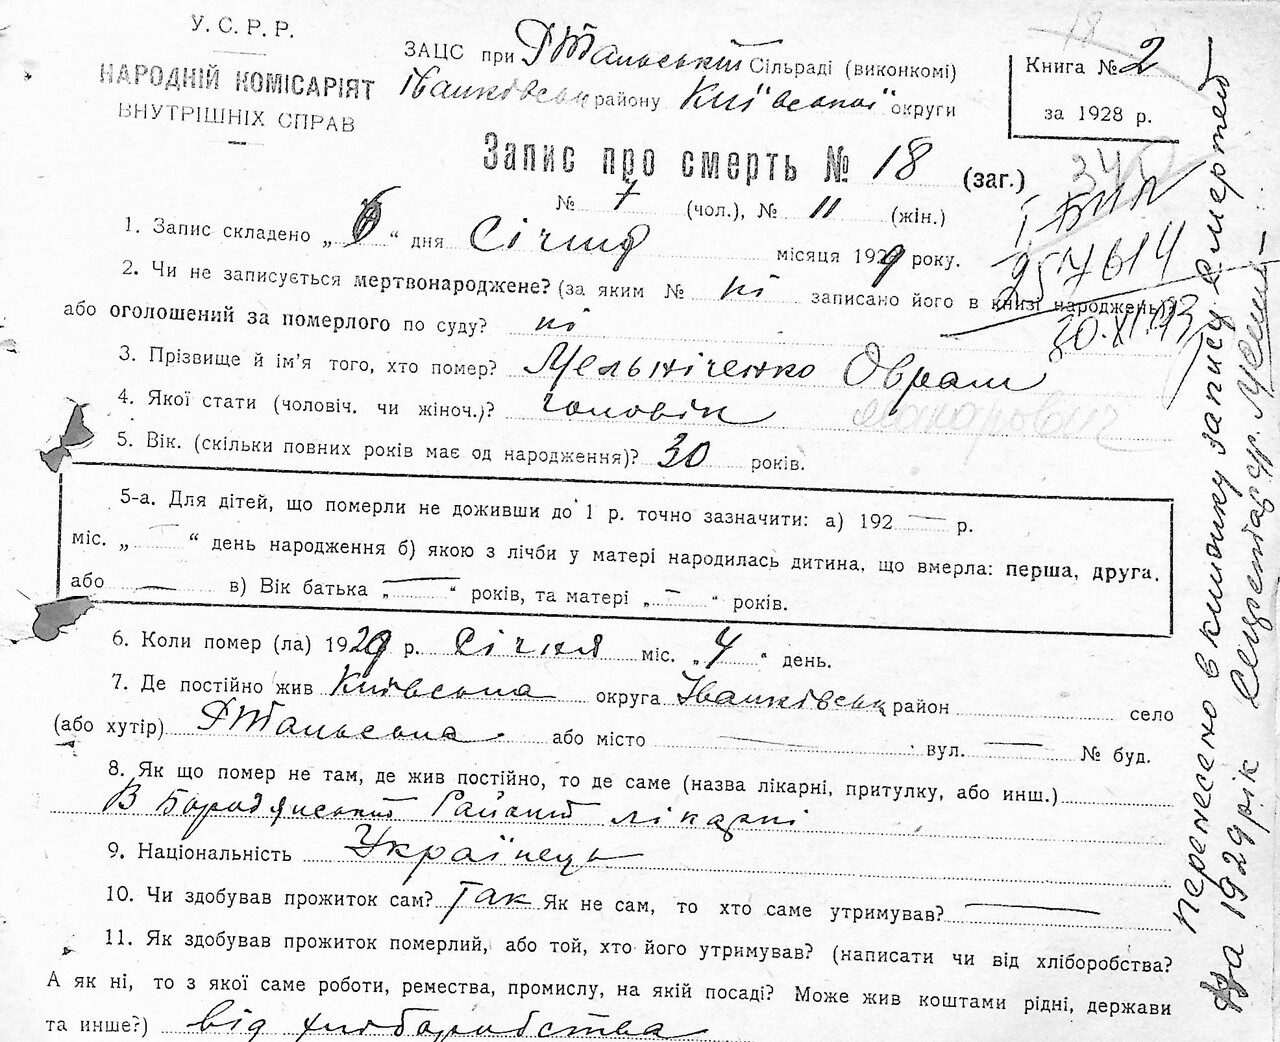 У. С. Р. Р.
НАРОДНІЙ КОМІСАРІЯТ
ВНУТРІШНІХ СПРАВ
ЗАЦС при Сільраді (виконкомі)
Іванківськ району Київської округи
Книга № 2
за 1928 р.
18
Запис про смерть № 18 (заг.)
№ 7 (чол.), № 11 (жін.)
340
І БИЛ
257614
30.XI.93
1. Запис складено „6“ дня Січня місяця 1929 року.
2. Чи не записується мертвонароджене? (за яким № ні записано його в книзі народжень)?
або оголошений за померлого по суду? ні
3. Прізвище й ім’я того, хто помер? Мельніченко Оврам
4. Якої стати (чоловіч. чи жіноч.)? чоловік Макарович
5. Вік. (скільки повних років має од народження)? 30 років.
5-а. Для дітей, що померли не доживши до 1 р. точно зазначити: а) 192 — р.
міс. „ “ день народження б) якою з лічби у матері народилась дитина, що вмерла: перша, друга.
або — в) Вік батька „ — “ років, та матері „ — “ років.
6. Коли помер (ла) 1929 р. Січня міс. „4“ день.
7. Де постійно жив Київська округа Іванківськ район село
(або хутір) або місто — вул. — № буд.
8. Як що помер не там, де жив постійно, то де саме (назва лікарні, притулку, або инш.)
В Бородянській Районій лікарні
9. Національність Українець
10. Чи здобував прожиток сам? Так Як не сам, то хто саме утримував? —
11. Як здобував прожиток померлий, або той, хто його утримував? (написати чи від хліборобства?
А як ні, то з якої саме роботи, ремества, промислу, на якій посаді? Може жив коштами рідні, держави
та инше?) від хліборобства
Перенесено в книжку запису смертей
на 1929 рік